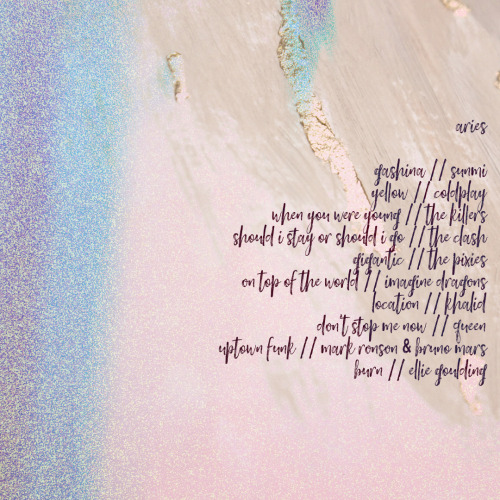 aries
gashina // sunmi
yellow // coldplay
when you were young // the killers
should i stay or should i go // the clash
gigantic // the pixies
on top of the world // imagine dragons
location // khalid
don't stop me now // queen
uptown funk // mark ronson & bruno mars
burn // ellie goulding